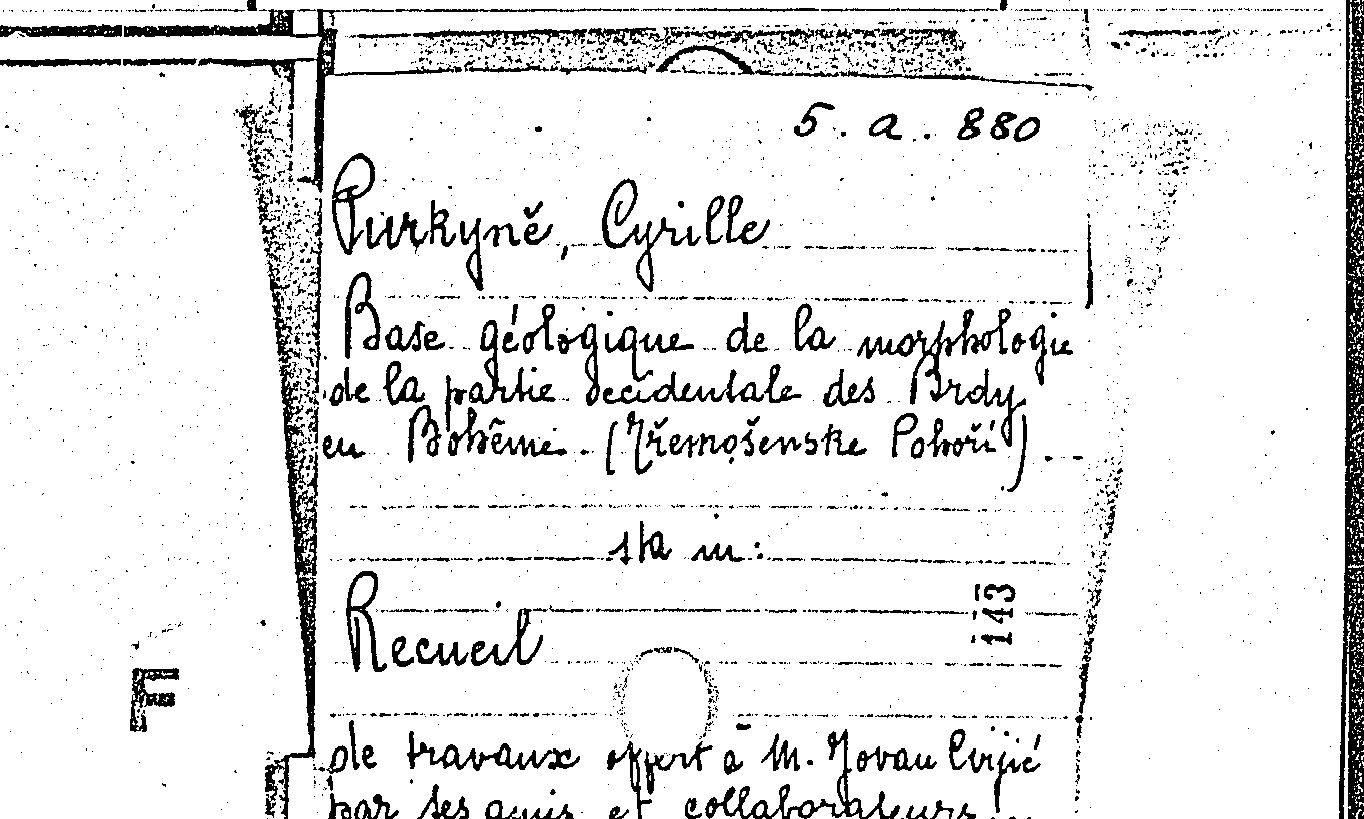 5. a. 880
Purkyně, Cyrille
Base géologique de la morphologie
de la partie occidentale des Brdy
en Bohême. (Třemošenske Pohoří).
sta in:
143
Recueil
F
de travaux offert à M. Jovan Cvijić
par ses amis et collaborateurs